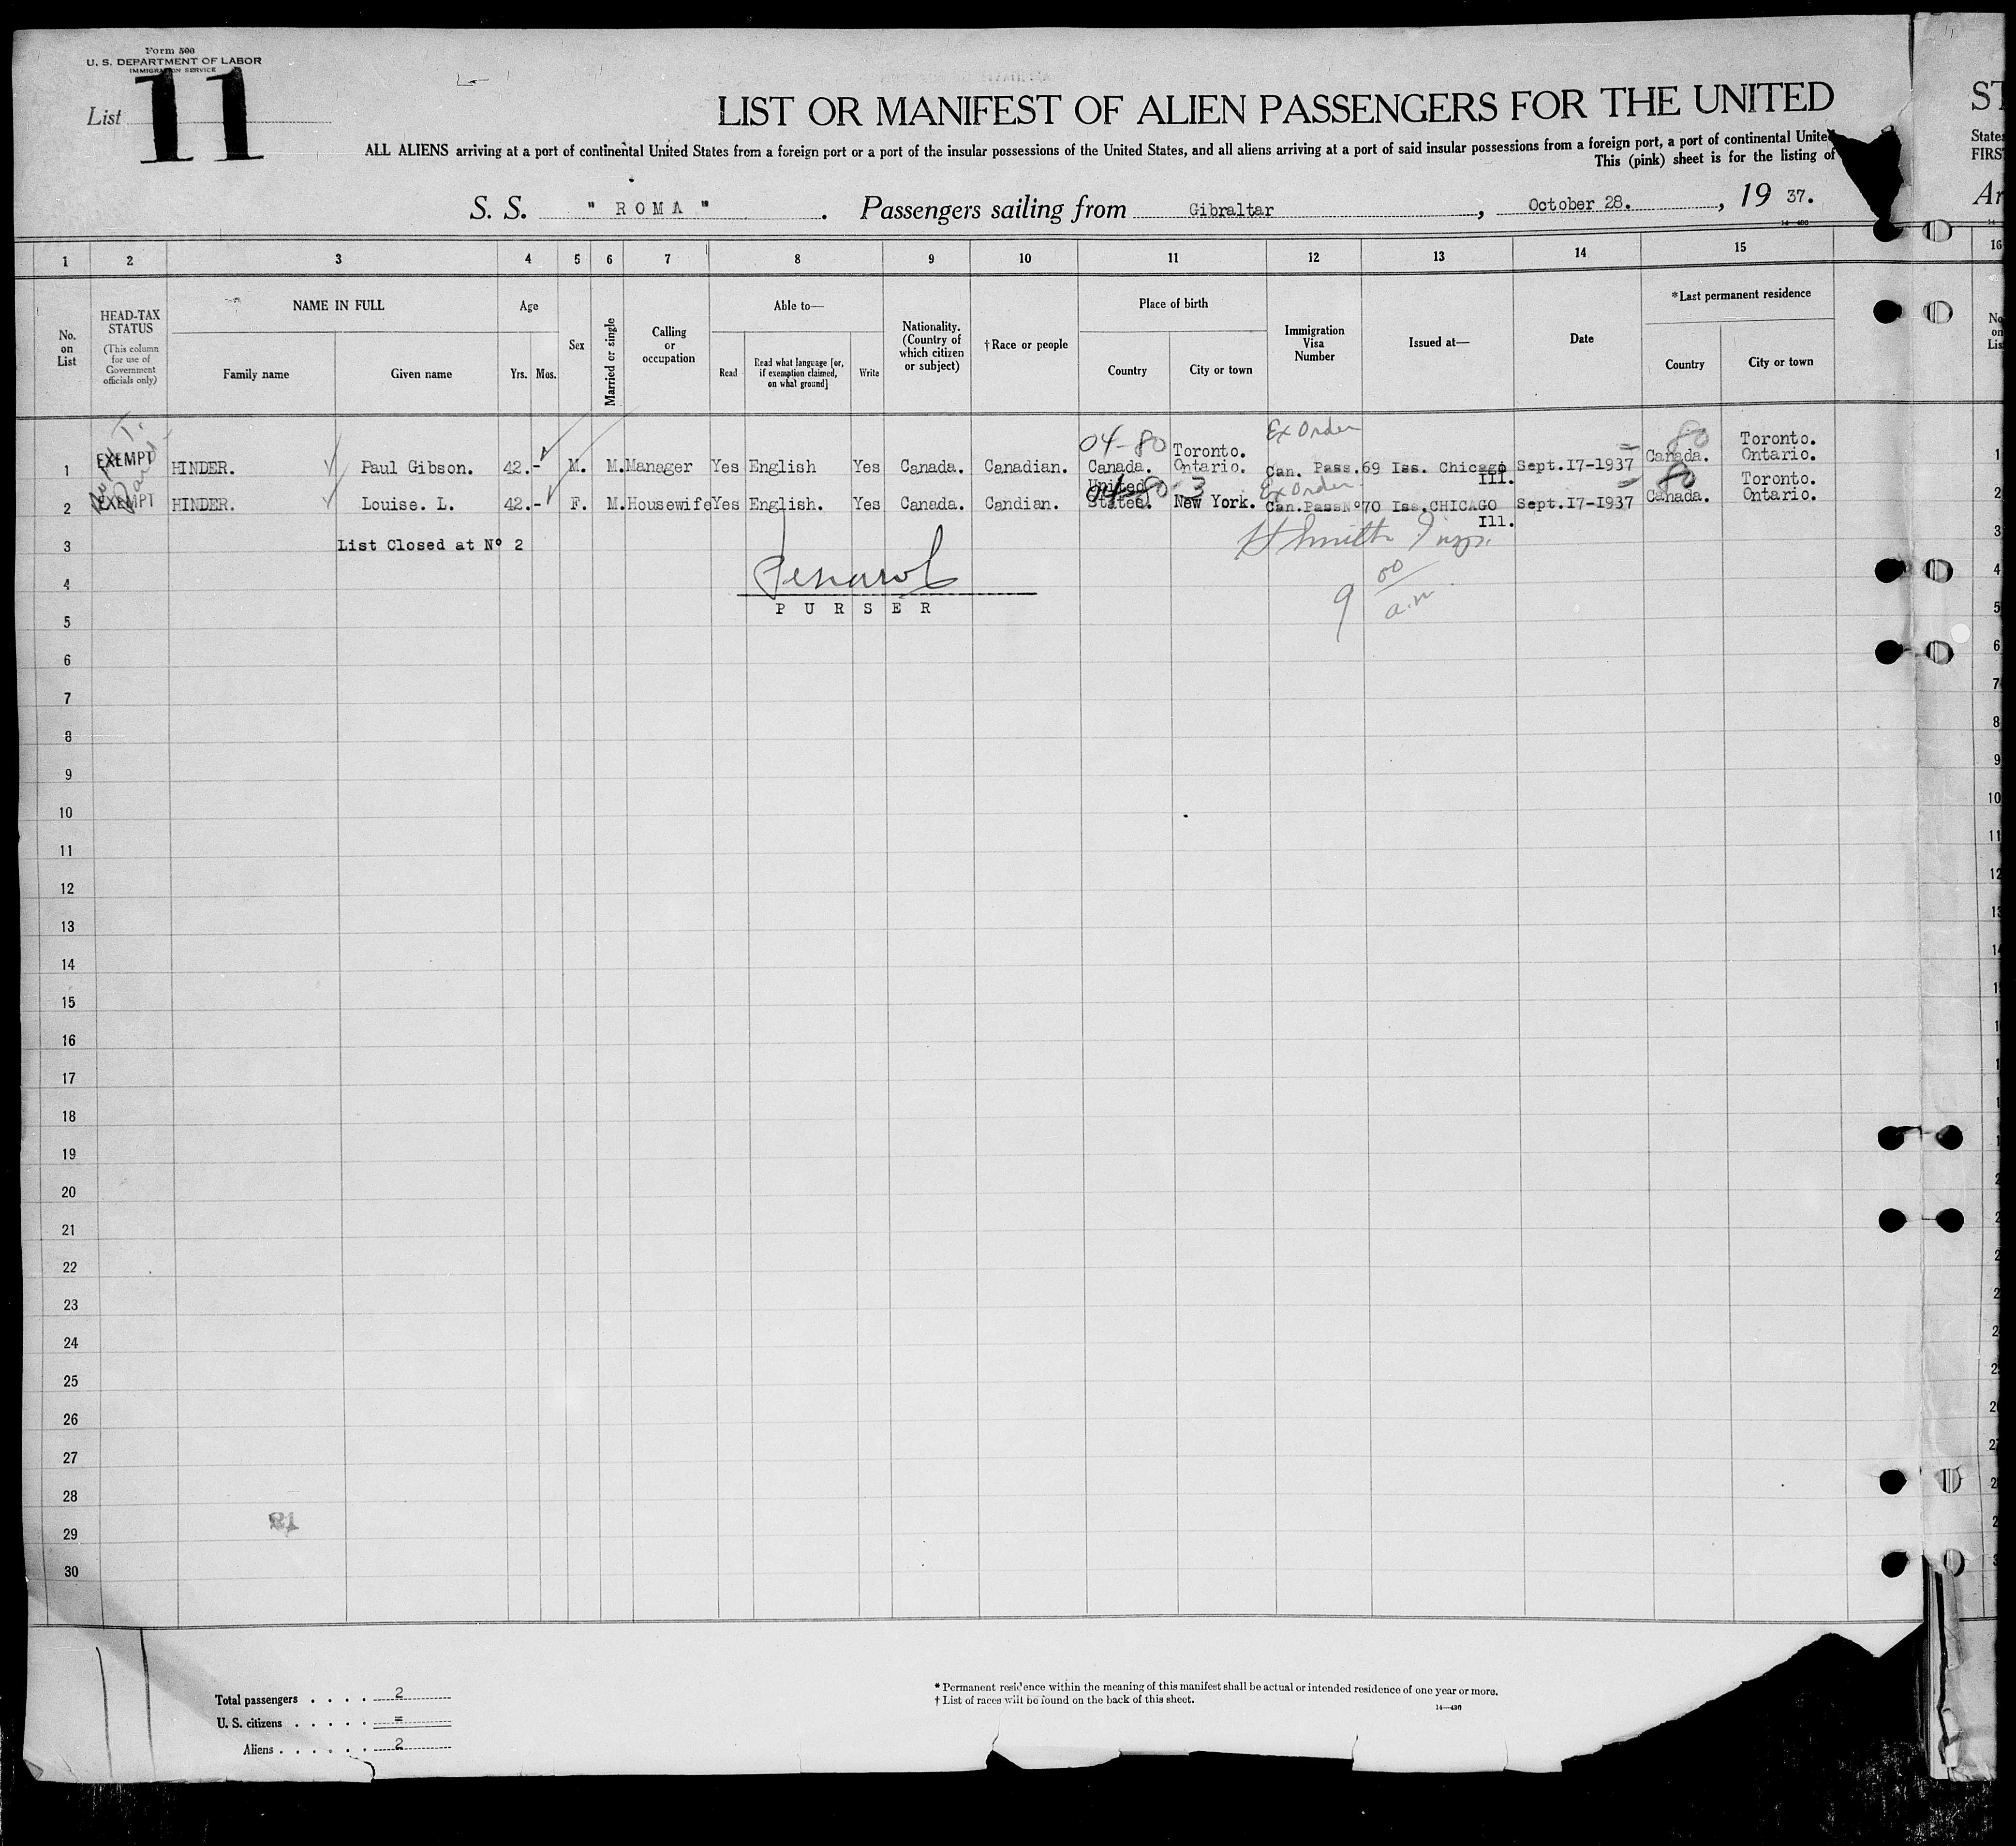 Form 500
U. S. DEPARTMENT OF LABOR
IMMIGRATION SERVICE
List 11
LIST OR MANIFEST OF ALIEN PASSENGERS FOR THE UNITED
ST
ALL ALIENS arriving at a port of continental United States from a foreign port or a port of the insular possessions of the United States, and all aliens arriving at a port of said insular possessions from a foreign port, a port of continental United
States
This (pink) sheet is for the listing of
FIRS
S. S. " ROMA " . Passengers sailing from Gibraltar , October 28. , 19 37.
Ar
1 2 3 4 5 6 7 8 9 10 11 12 13 14 15 16
No. on List
HEAD-TAX STATUS
(This column for use of Government officials only)
NAME IN FULL
Family name
Given name
Age
Yrs. Mos.
Sex
Married or single
Calling or occupation
Able to—
Read
Read what language [or, if exemption claimed, on what ground]
Write
Nationality. (Country of which citizen or subject)
†Race or people
Place of birth
Country
City or town
Immigration Visa Number
Issued at—
Date
*Last permanent residence
Country
City or town
04-80 Ex Order 80
Toronto. Toronto.
1 EXEMPT HINDER. Paul Gibson. 42.- M. M. Manager Yes English Yes Canada. Canadian. Canada. Ontario. Can. Pass.69 Iss. Chicago Ill. Sept.I7-1937 Canada. Ontario.
04-80-3 Ex Order 80
United Toronto.
2 EXEMPT HINDER. Louise. L. 42.- F. M. Housewife Yes English. Yes Canada. Candian. States. New York. Can.PassNº70 Iss.CHICAGO Ill. Sept.I7-1937 Canada. Ontario.
3 List Closed at Nº 2
H Smith Insp.
9 00 a.m
4
PURSER
5
6
7
8
9
10
11
12
13
14
15
16
17
18
19
20
21
22
23
24
25
26
27
28
29
30
Total passengers . . . . 2
U. S. citizens . . . . . =
Aliens . . . . . . 2
* Permanent residence within the meaning of this manifest shall be actual or intended residence of one year or more.
† List of races will be found on the back of this sheet.
14—430